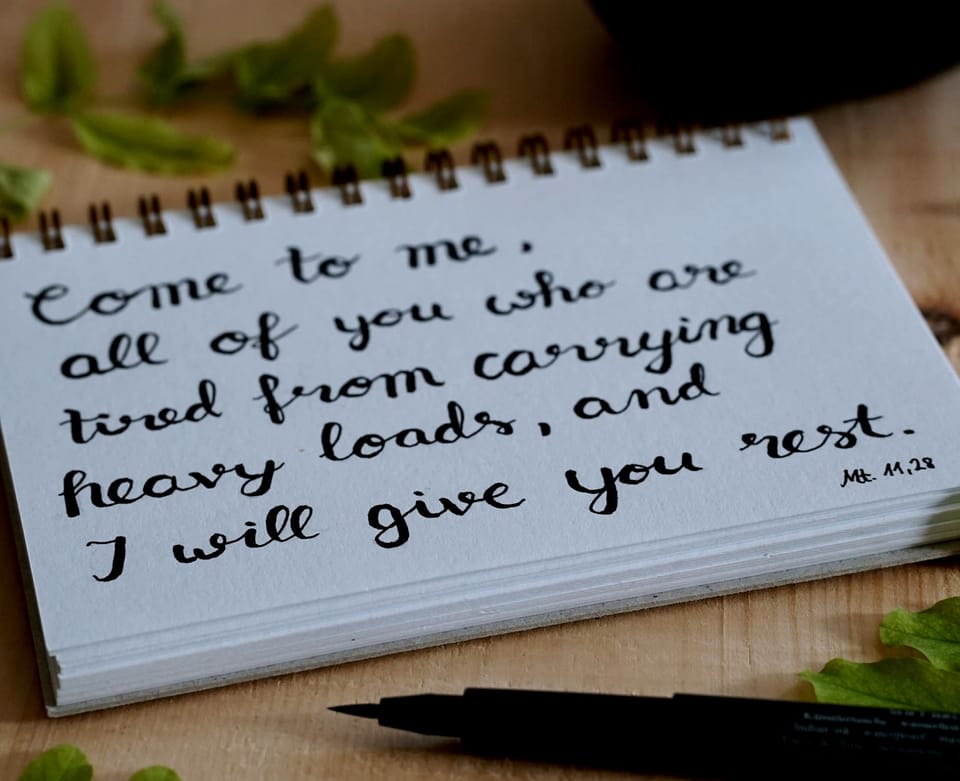 Come to me,
all of you who are
tired from carrying
heavy loads, and
I will give you rest.
Mt. 11,28